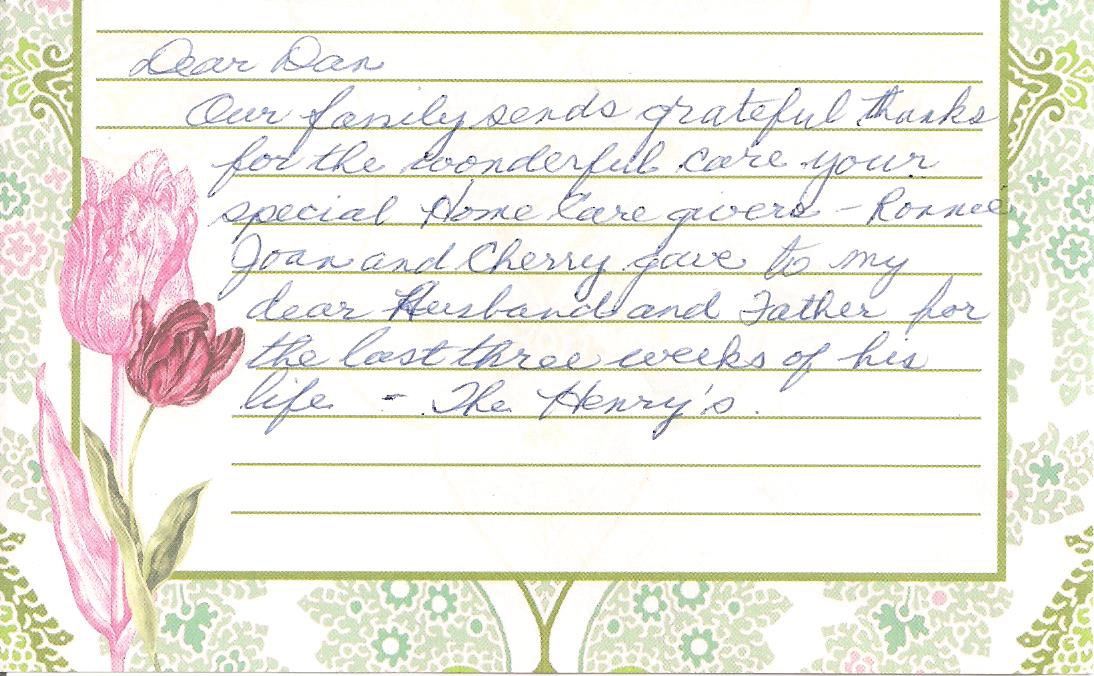 Dear Dan
Our family sends grateful thanks
for the wonderful care your
special Home Care givers - Ronnie
Joan and Cherry gave to my
dear Husband and Father for
the last three weeks of his
life - The Henry's.